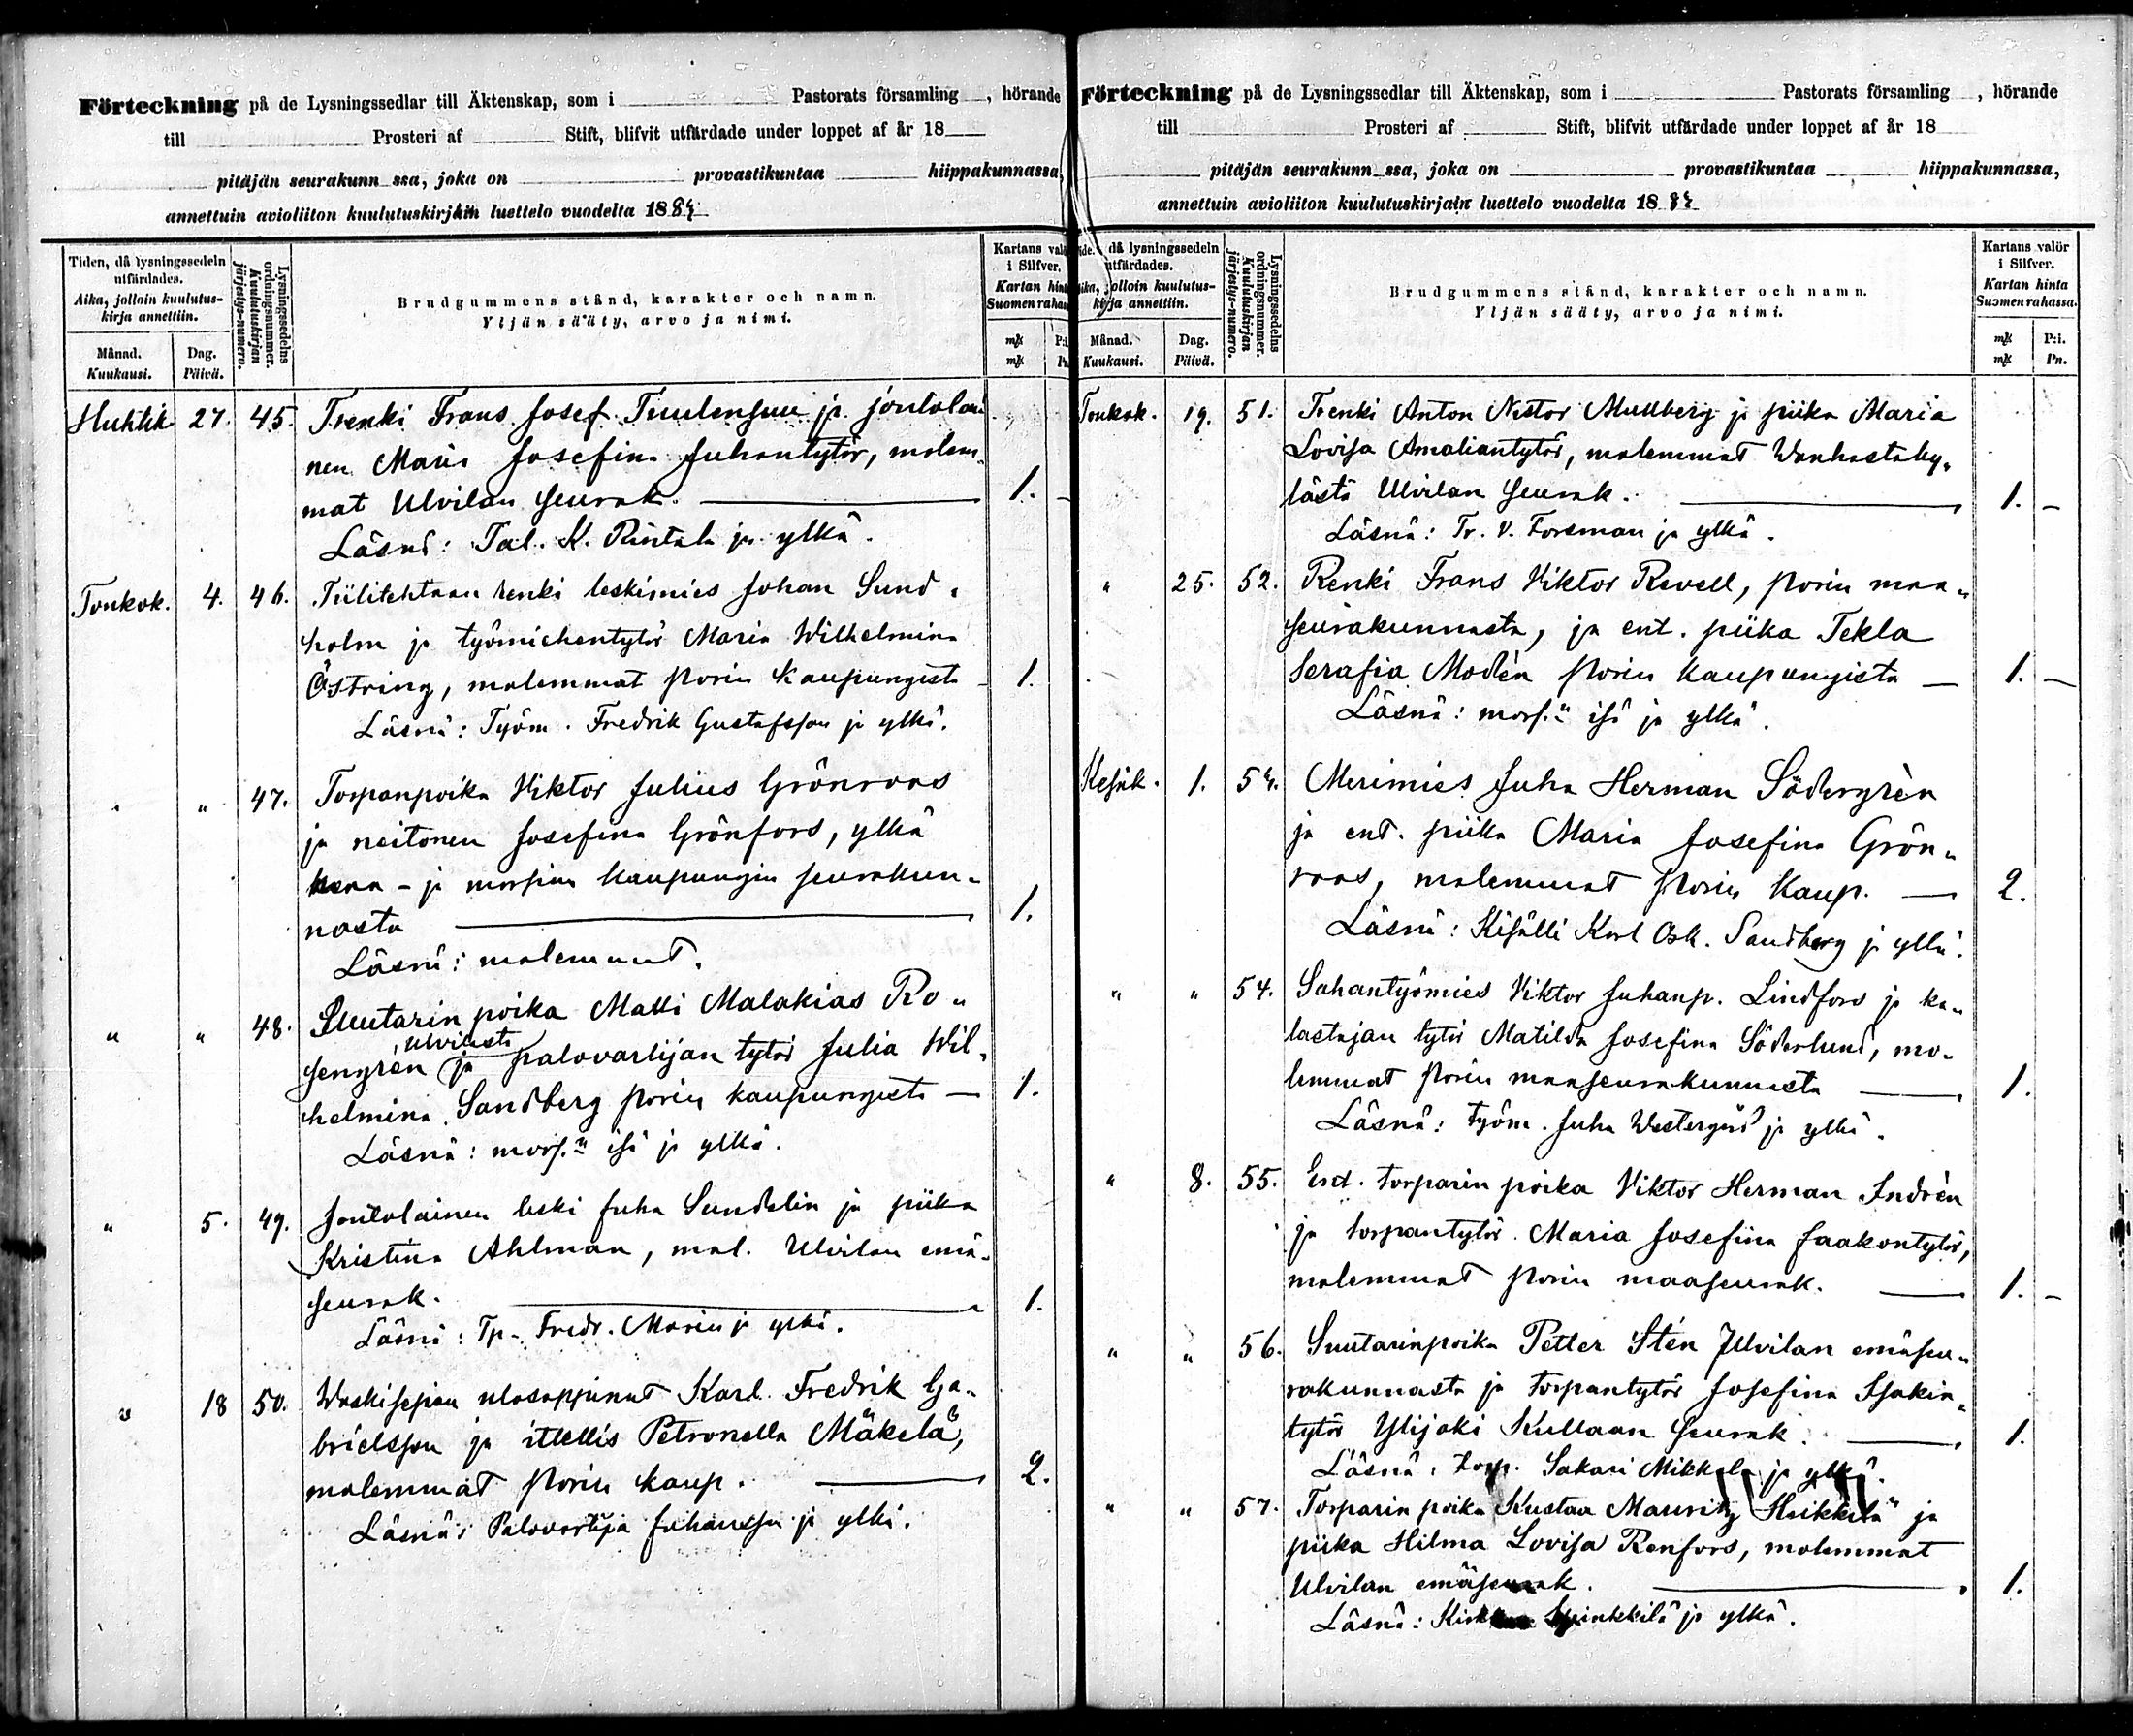 Förteckning på de Lysningssedlar till Äktenskap, som i Pastorats församling , hörande
till Prosteri af Stift, blifvit utfärdade under loppet af år 18
pitäjän seurakunn ssa, joka on provastikuntaa hiippakunnassa,
annettuin avioliiton kuulutuskirjain luettelo vuodelta 1884
Tiden, då lysningssedeln utfärdades.
Aika, jolloin kuulutus-
kirja annettiin.
Månad.
Kuukausi.
Dag.
Päivä.
Lysningssedelns
ordningsnummer.
Kuulutuskirjan
järjestys-numero.
Brudgummens stånd, karakter och namn.
Yljän sääty, arvo ja nimi.
Kartans val
i Silfver.
Kartan hin
Suomen raha
mk
mk
Huhtik 27. 45. Trenki Frans Josef Tuulensuu ja jontolai
nen Maria Josefina Juhantytör, molem-
mat Ulvilan seurak. 1. -
Läsnä: Tal. K. Rintala ja ylkä.
Toukok. 4. 46. Tiilitehtaan renki leskimies Johan Sund-
holm ja työmiehentytör Maria Wilhelmina
Östring, molemmat Porin kaupungista - 1.
Läsnä: Työm. Fredrik Gustafsson ja ylkä.
" " 47. Torpanpoika Viktor Julius Grönroos
ja neitonen Josefina Grönfors, ylkä
- ja morsian kaupungin seurakun-
nasta 1.
Läsnä: molemmat.
" " 48. Suutarin poika Matti Malakias Ro-
, Ulvilasta
sengrén ja palovartijan tytör Julia Wil-
helmina Sandberg Porin kaupungista - 1.
Läsnä: mors:n isä ja ylkä.
" 5. 49. Jontolainen leski Juha Sundelin ja piika
Kristina Ahlman, mol. Ulvilan emä-
seurak. 1.
Läsnä: Tp. Fredr. Morin ja ylkä.
" 18 50. Waskisepän ulosoppinut Karl Fredrik Ga-
brielsson ja itsellis Petronella Mäkelä,
molemmat Porin kaup. 2.
Läsnä: Palovartija Juhansson ja ylkä.
Förteckning på de Lysningssedlar till Äktenskap, som i Pastorats församling , hörande
till Prosteri af Stift, blifvit utfärdade under loppet af år 18
pitäjän seurakunn ssa, joka on provastikuntaa hiippakunnassa,
annettuin avioliiton kuulutuskirjain luettelo vuodelta 1884
då lysningssedeln
utfärdades.
jolloin kuulutus-
kirja annettiin.
Månad.
Kuukausi.
Dag.
Päivä.
Lysningssedelns
ordningsnummer.
Kuulutuskirjan
järjestys-numero.
Brudgummens stånd, karakter och namn.
Yljän sääty, arvo ja nimi.
Kartans valör
i Silfver.
Kartan hinta
Suomen rahassa.
mk P:i.
mk Pn.
Toukok. 19. 51. Trenki Anton Nestor Mullberg ja piika Maria
Lovisa Amaliantytör, molemmat Wanhastaky-
lästä Ulvilan seurak. 1. -
Läsnä: Tr. V. Forsman ja ylkä.
" 25. 52. Renki Frans Viktor Revell, Porin maa-
seurakunnasta, ja ent. piika Tekla
Serafia Modén Porin kaupungista - 1. -
Läsnä: mors:n isä ja ylkä.
Kesäk. 1. 53. Merimies Juha Herman Södergrèn
ja ent. piika Maria Josefina Grön-
roos, molemmat Porin kaup. - 2.
Läsnä: Kisälli Karl Osk. Sandberg ja ylkä.
" " 54. Sahantyömies Viktor Juhanp. Lindfors ja ka-
lastajan tytör Matilda Josefina Söderlund, mo-
lemmat Porin maaseurakunnasta 1.
Läsnä: Työm. Juha Westergård ja ylkä.
" 8. 55. Ent. torparin poika Viktor Herman Indrén
ja torpantytör Maria Josefiina Jaakontytör,
molemmat Porin maaseurak. 1. -
" " 56. Suutarinpoika Petter Stén Ulvilan emäseu-
rakunnasta ja torpantytör Josefina Isakin-
tytör Ylijoki Kullaan seurak. 1.
Läsnä: torp. Sakari Mikkola ja ylkä.
" " 57. Torparin poika Kustaa Mauritz Heikkilä ja
piika Hilma Lovisa Renfors, molemmat
Ulvilan emäseurak. 1.
Läsnä: ja ylkä.